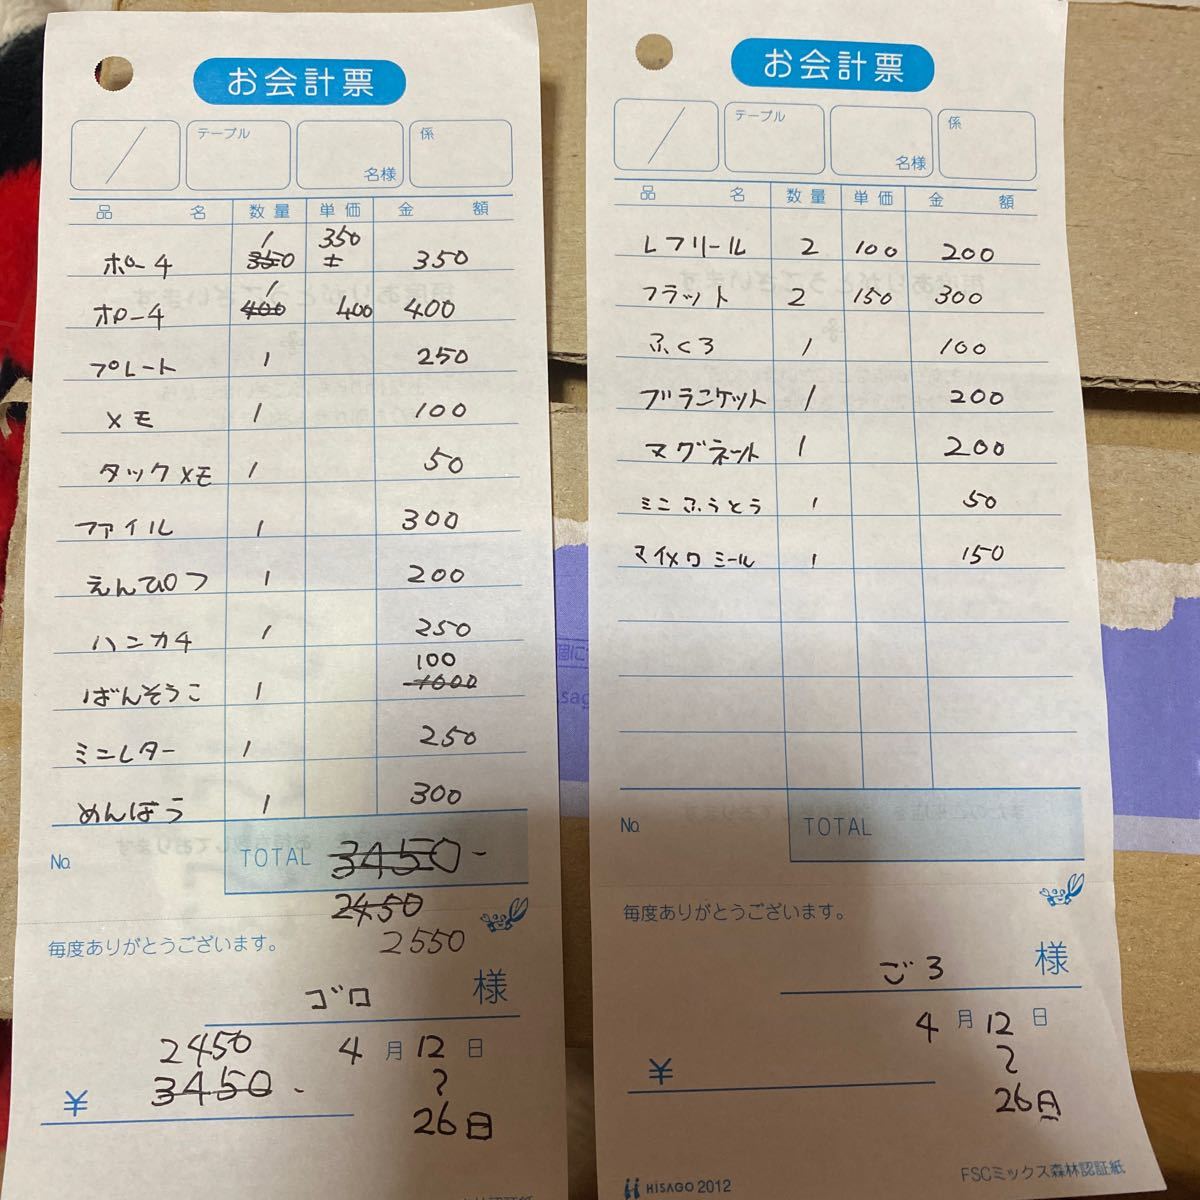 お会計票
テーブル
名様
係
品名 数量 単価 金額
ポーチ 1 350 350 350
ポーチ 1 400 400 400
プレート 1 250
メモ 1 100
タックメモ 1 50
ファイル 1 300
えんぴつ 1 200
ハンカチ 1 250
ばんそうこ 1 100 1000
ミニレター 1 250
めんぼう 1 300
No. TOTAL 3450-
2450
2550
毎度ありがとうございます。
ゴロ 様
2450 4月12日
¥ 3450-
26日
お会計票
テーブル
名様
係
品名 数量 単価 金額
Lフリール 2 100 200
フラット 2 150 300
ふくろ 1 100
ブランケット 1 200
マグネット 1 200
ミニふうとう 1 50
マイメロミール 1 150
No. TOTAL
毎度ありがとうございます。
ごろ 様
4月12日
¥
26日
HISAGO 2012
FSCミックス森林認証紙